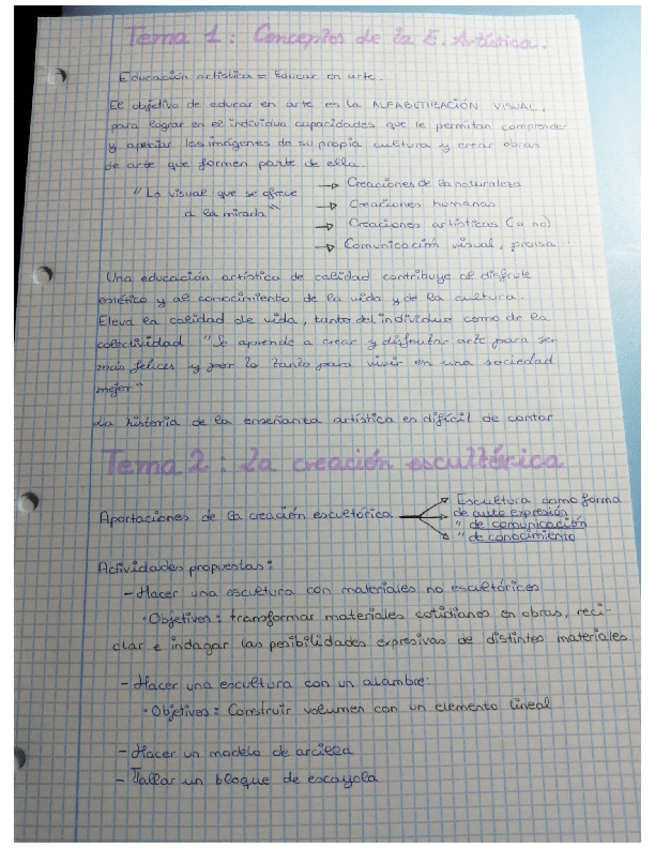 Tema 1: Conceptos de la E. Artística.
Educación artística = Educar en arte.
El objetivo de educar en arte es la ALFABETIZACIÓN VISUAL,
para lograr en el individuo capacidades que le permitan comprender
y apreciar las imágenes de su propia cultura y crear obras
de arte que formen parte de ella.
"Lo visual que se ofrece
a la mirada"
→ Creaciones de la naturaleza
→ Creaciones humanas
→ Creaciones artísticas (o no)
→ Comunicación visual, prensa...
Una educación artística de calidad contribuye al disfrute
estético y al conocimiento de la vida y de la cultura.
Eleva la calidad de vida, tanto del individuo como de la
colectividad "Se aprende a crear y disfrutar arte para ser
más felices y por lo tanto para vivir en una sociedad
mejor"
La historia de la enseñanza artística es difícil de contar
Tema 2: La creación escultórica
Aportaciones de la creación escultórica
Escultura como forma
de auto expresión
" de comunicación
" de conocimiento
Actividades propuestas:
- Hacer una escultura con materiales no escultóricos
· Objetivos: transformar materiales cotidianos en obras, reci-
clar e indagar las posibilidades expresivas de distintos materiales.
- Hacer una escultura con un alambre:
· Objetivos: Construir volumen con un elemento lineal.
- Hacer un modelo de arcilla
- Tallar un bloque de escayola